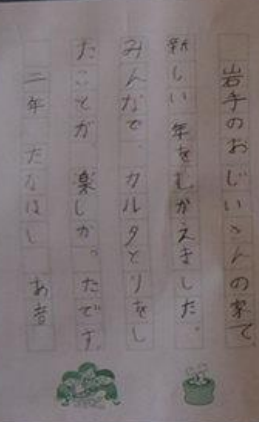 岩手のおじいさんの家で
新しい年をむかえました。
みんなで、カルタとりをし
たことが、楽しかったです。
二年 たなはし あき